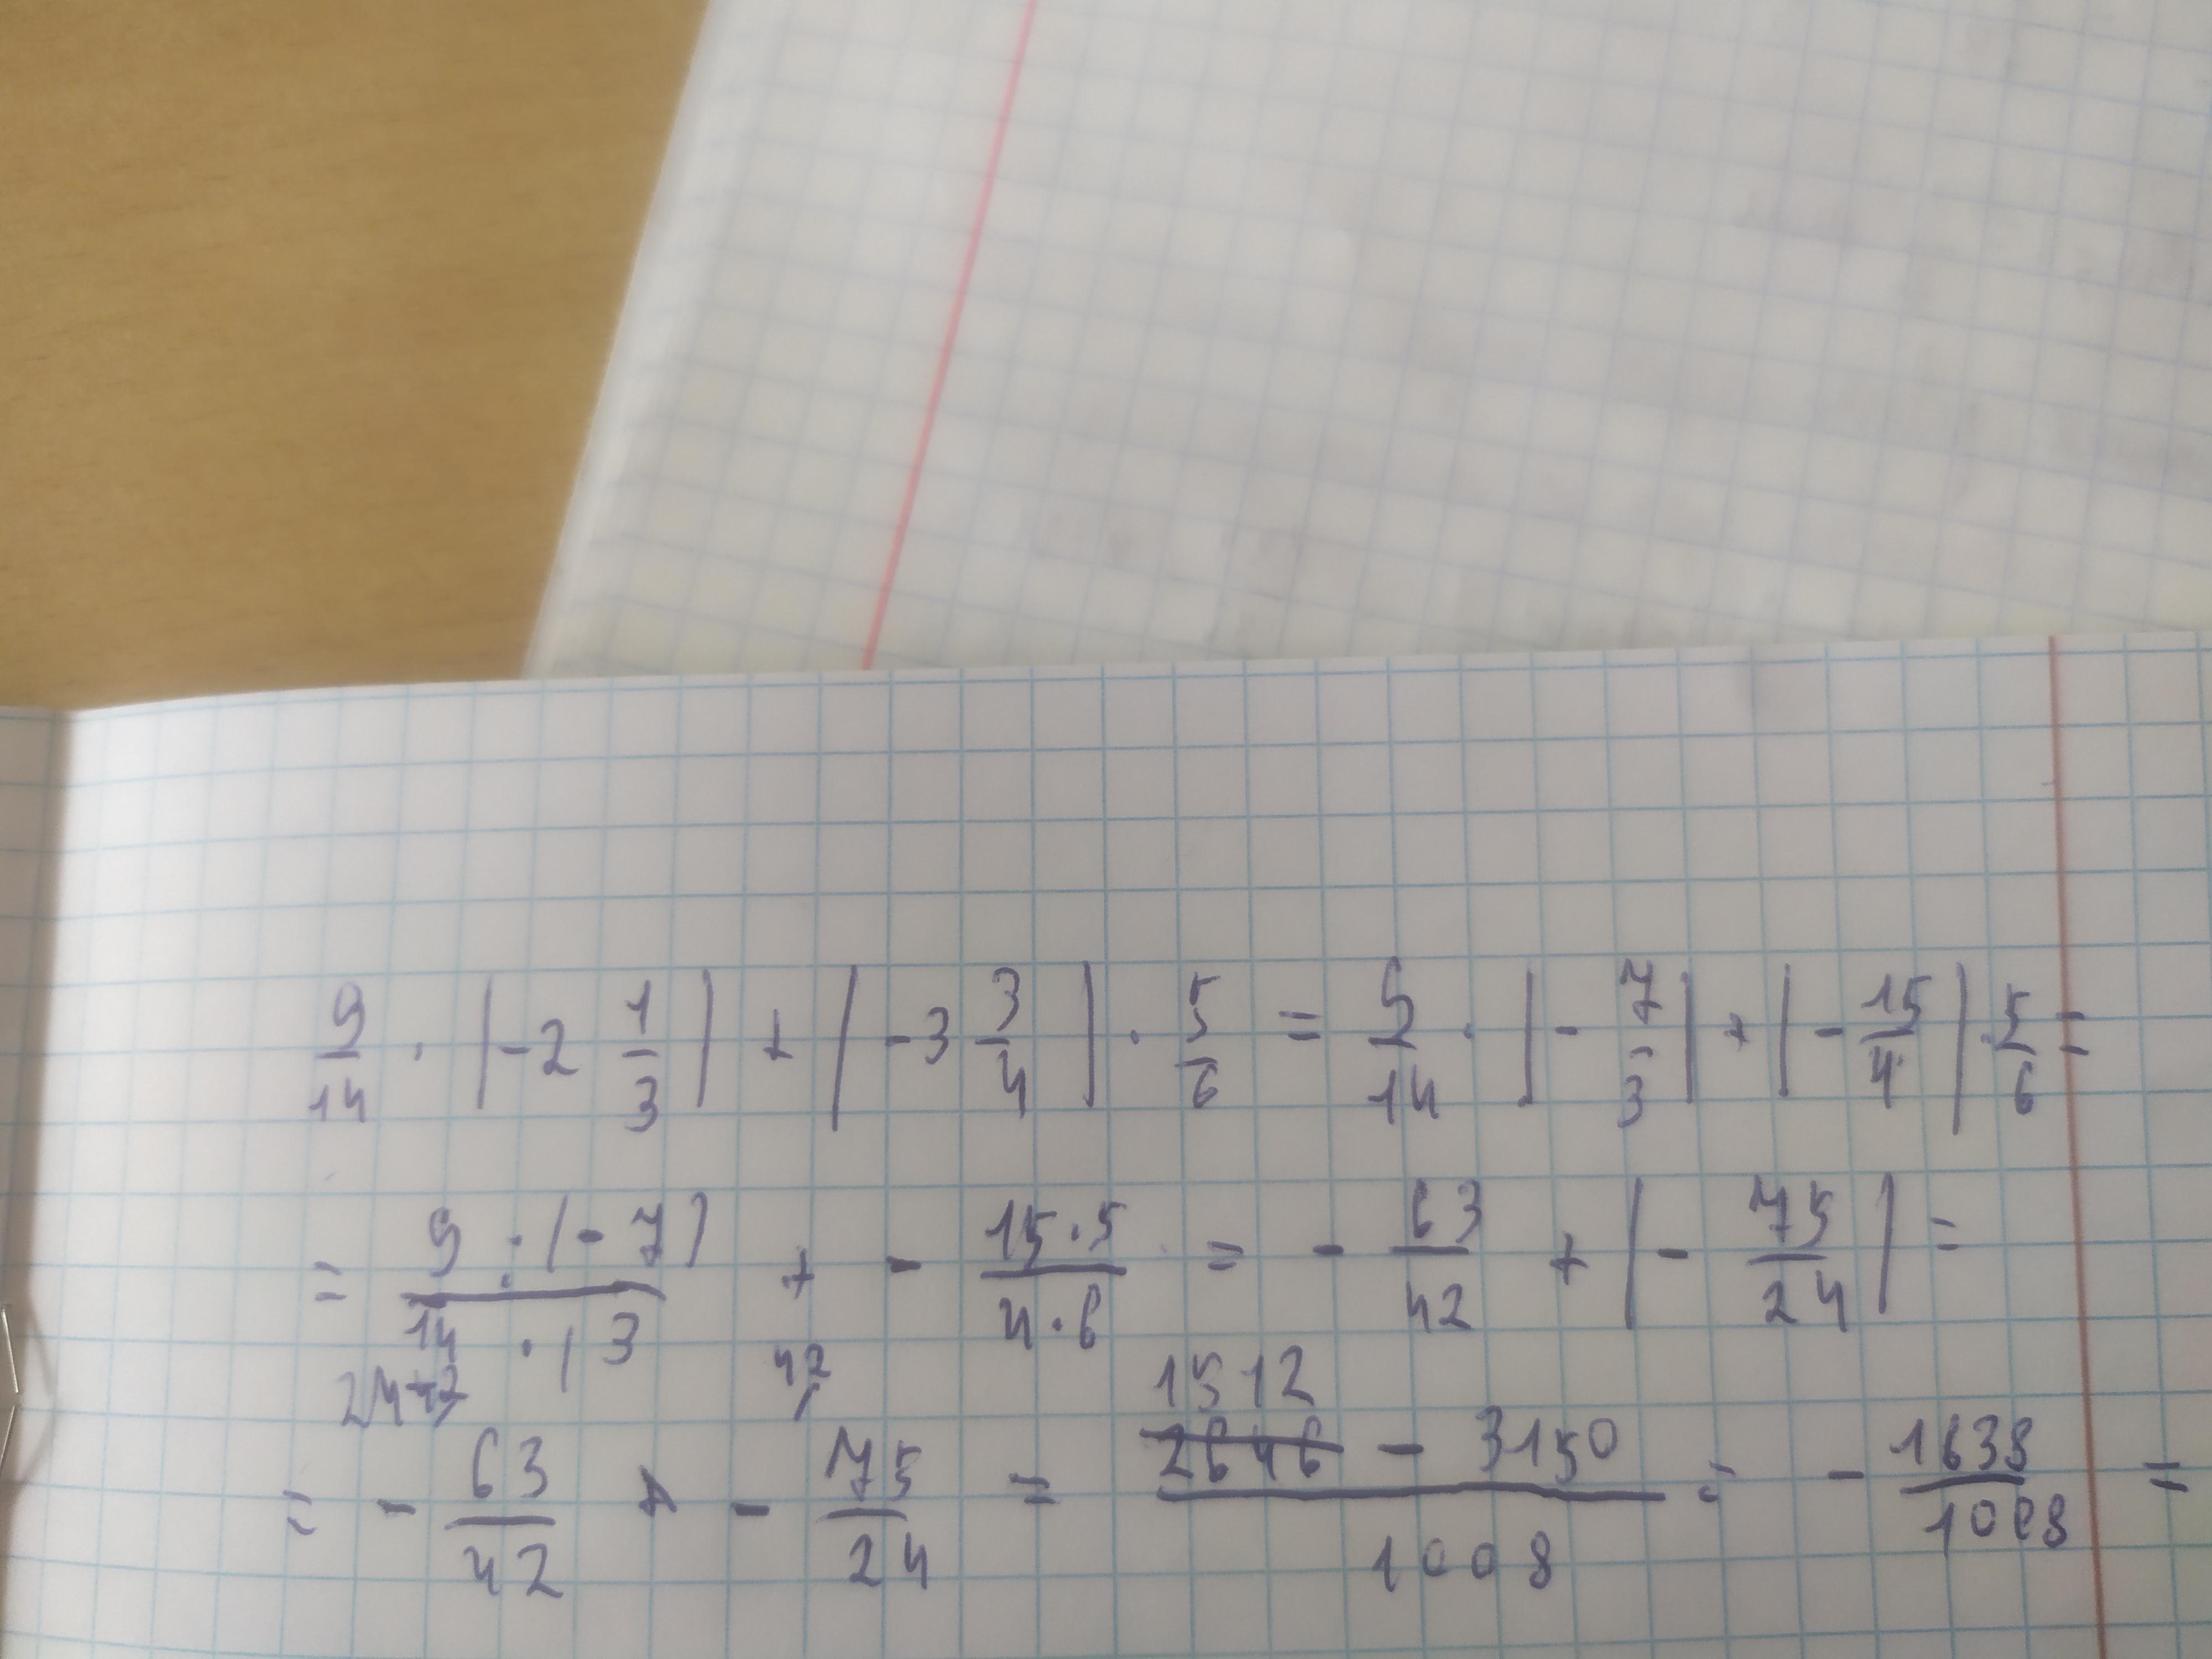 9/14 · |-2 1/3| + |-3 3/4| · 5/6 = 9/14 · |- 7/3| + |- 15/4| · 5/6 =
= 9 · (-7) / 14 · | 3 + - 15·5 / 4·6 = - 63/42 + |- 75/24| =
24 42
= - 63/42 + - 75/24 = 1512 - 3150 / 1008 = - 1638/1008 =